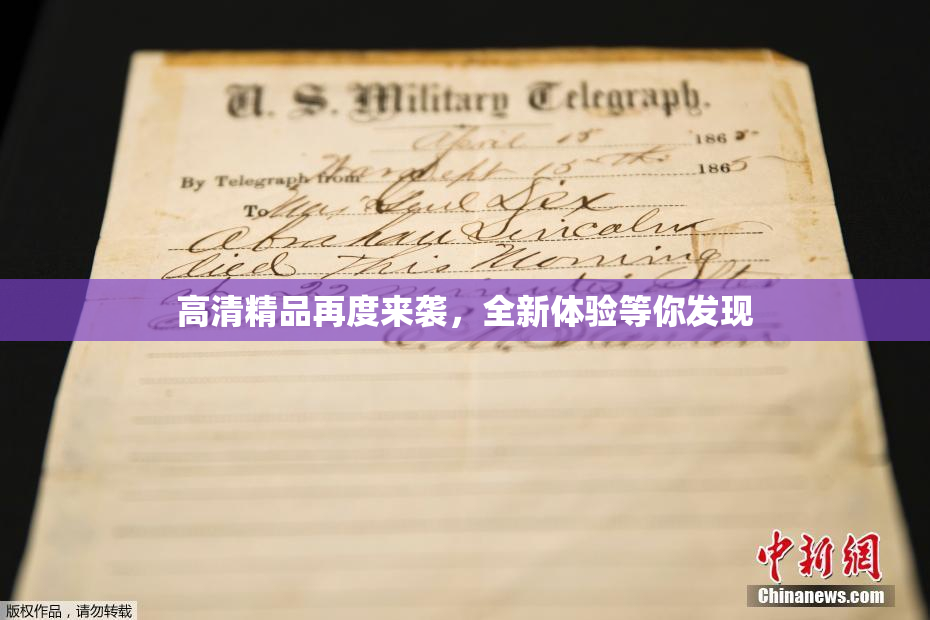 U. S. Military Telegraph.
April 15 1865
By Telegraph from War Dept 15th 1865
To Maj Genl Dix
Abraham Lincoln
died This Morning
at 22 minutes after
E. M. Stanton
高清精品再度来袭，全新体验等你发现
中新网
Chinanews.com
版权作品，请勿转载